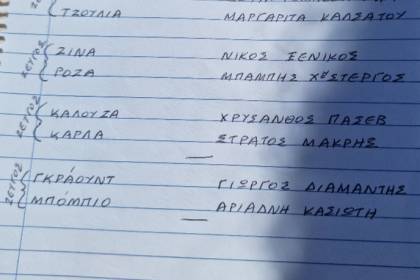 ΤΖΟΥΛΙΑ ΜΑΡΓΑΡΙΤΑ ΚΑΛΣΑΤΟΥ
ΖΕΥΓΟΣ
ΖΙΝΑ ΝΙΚΟΣ ΞΕΝΙΚΟΣ
ΡΟΖΑ ΜΠΑΜΠΗΣ
ΖΕΥΓΟΣ
ΚΑΛΟΥΖΑ ΧΡΥΣΑΝΘΟΣ ΠΑΣΕΒ
ΚΑΡΛΑ ΣΤΡΑΤΟΣ ΜΑΚΡΗΣ
ΖΕΥΓΟΣ
ΓΚΡΑΟΥΝΤ ΓΙΩΡΓΟΣ ΔΙΑΜΑΝΤΗΣ
ΜΠΟΜΠΙΟ ΑΡΙΑΔΝΗ ΚΑΣΙΩΤΗ